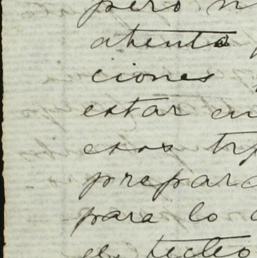 pero n
atento
ciones
estar en
esos tr
prepara
para lo
el techo